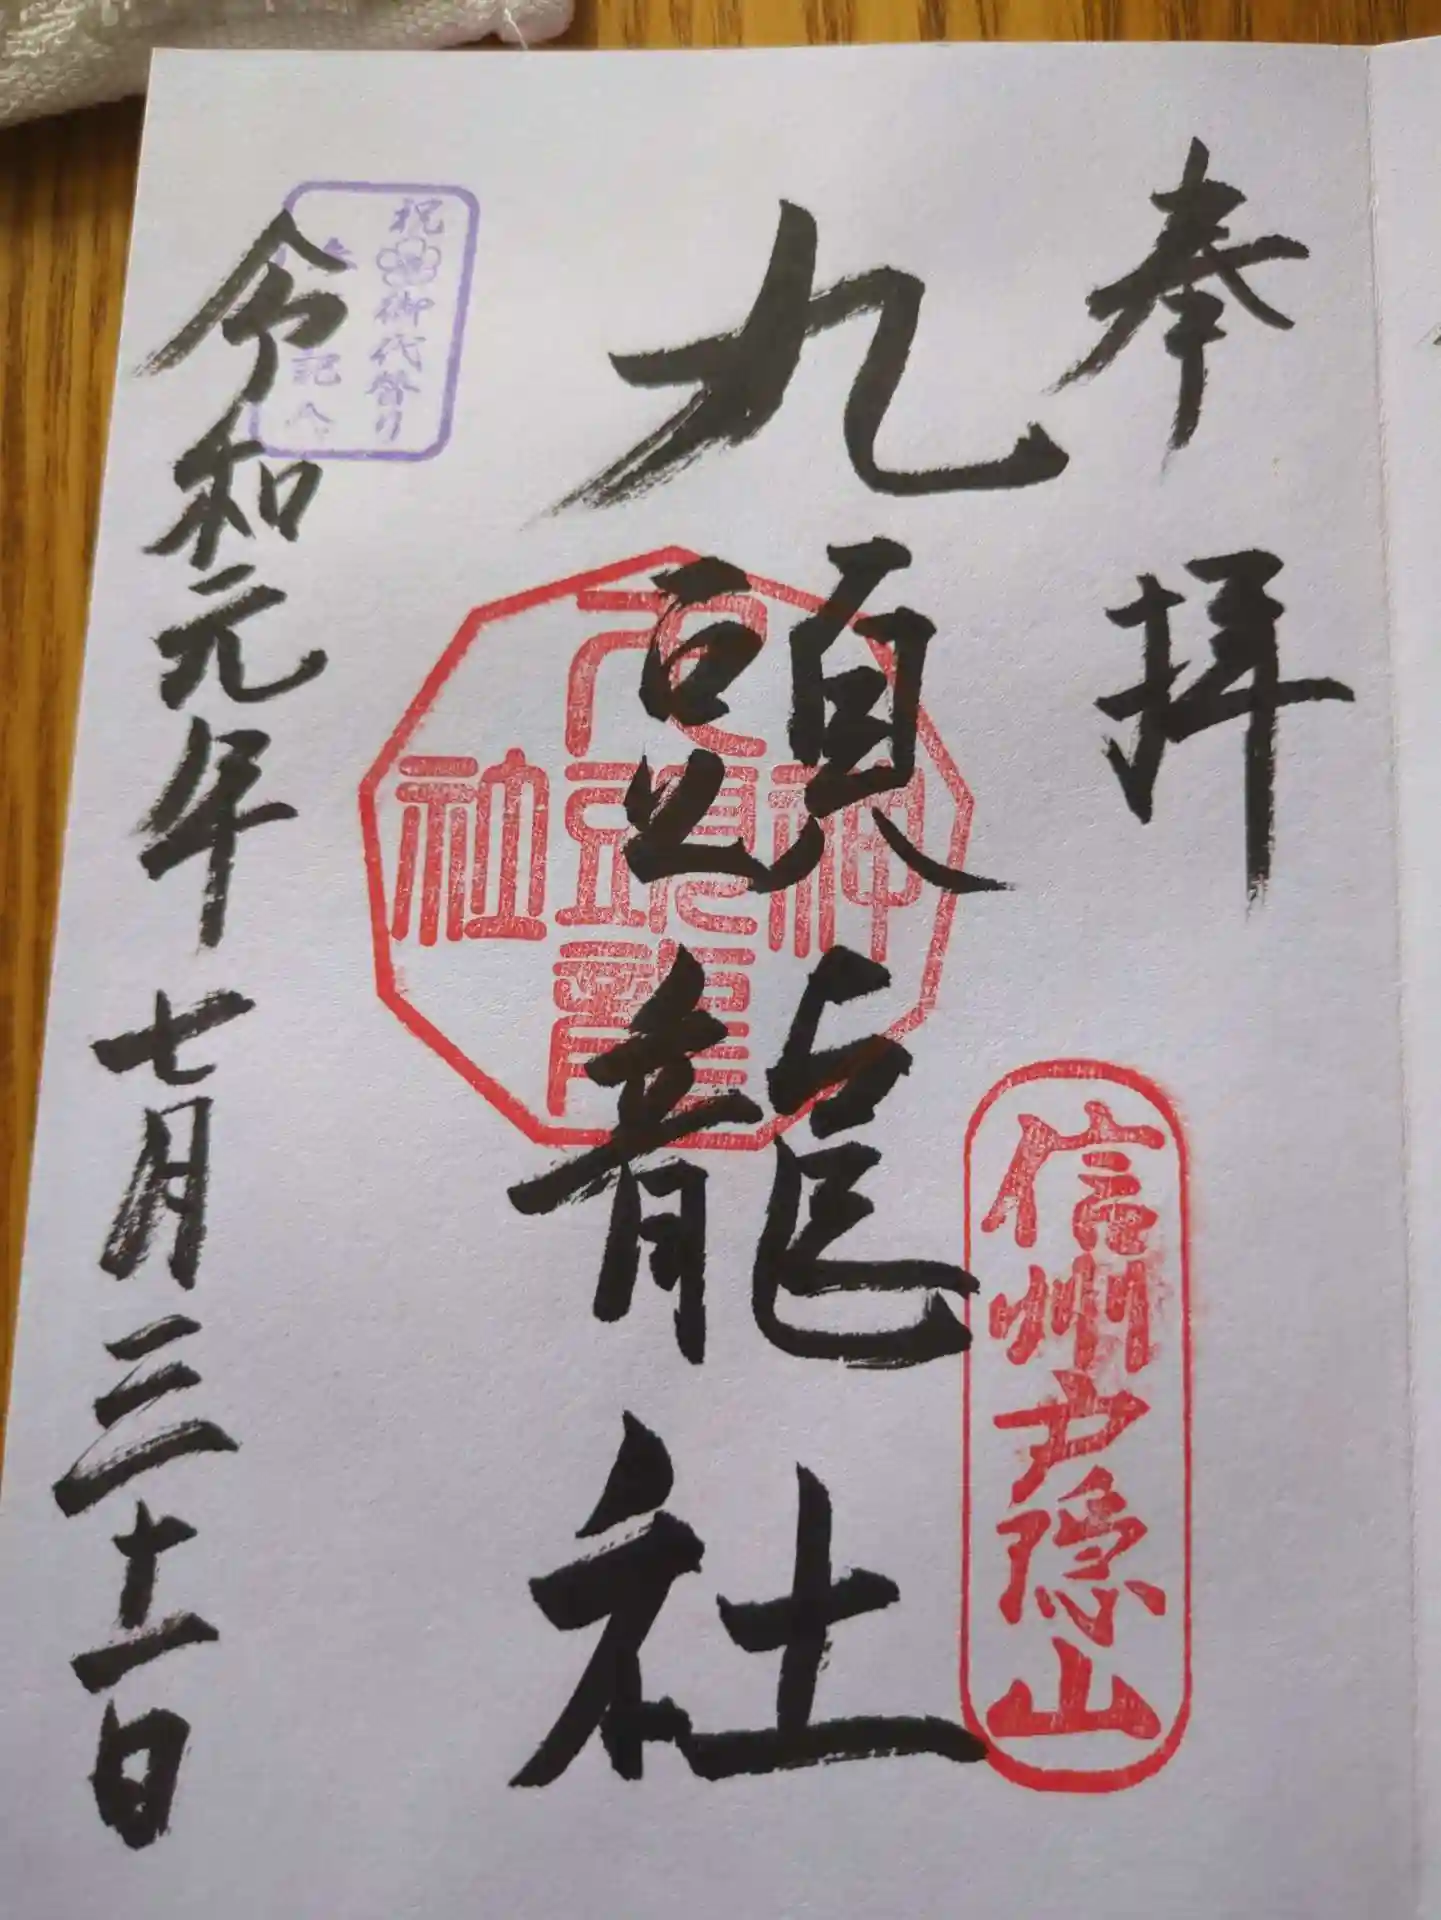 奉拝
信州戸隠山
九頭龍社
神
九頭龍
社
祝 御代替り
記念
令和元年 七月三十一日